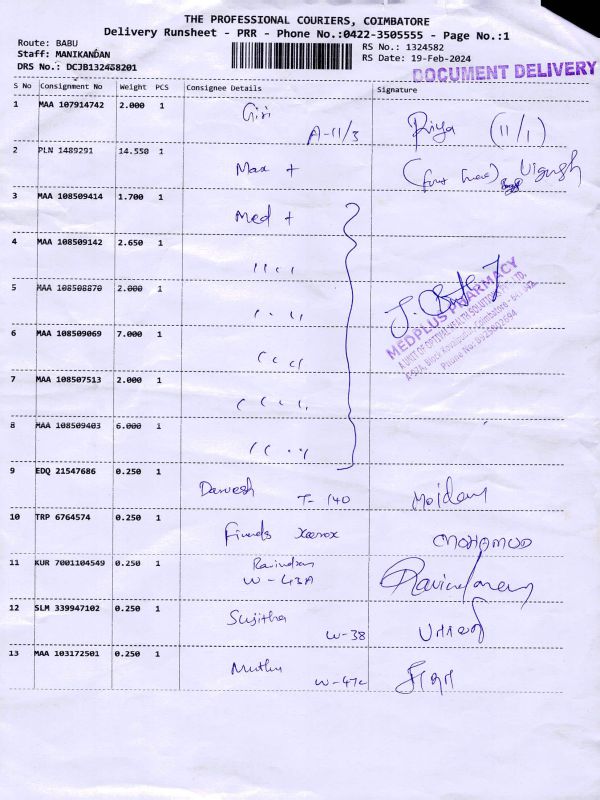 THE PROFESSIONAL COURIERS, COIMBATORE
Delivery Runsheet - PRR - Phone No.:0422-3505555 - Page No.:1
Route: BABU
Staff: MANIKANDAN
DRS No.: DCJB132458201
RS No.: 1324582
RS Date: 19-Feb-2024
DOCUMENT DELIVERY
S No Consignment No Weight PCS Consignee Details Signature
1 MAA 107914742 2.000 1 Giri A-11/3 Riya (11/1)
2 PLN 1489291 14.550 1 Max +
3 MAA 108509414 1.700 1 Med +
4 MAA 108509142 2.650 1 " "
5 MAA 108508870 2.000 1 " "
6 MAA 108509069 7.000 1 " "
7 MAA 108507513 2.000 1 " "
8 MAA 108509403 6.000 1 " "
MEDPLUS PHARMACY
A UNIT OF OPTIVAL HEALTH SOLUTIONS PVT. LTD.
9 EDQ 21547686 0.250 1 Darvesh T-140
10 TRP 6764574 0.250 1 Friends Xaerox MOHAMUD
11 KUR 7001104549 0.250 1 Ravindran W-43A
12 SLM 339947102 0.250 1 Sujitha W-38
13 MAA 103172501 0.250 1 Muthu